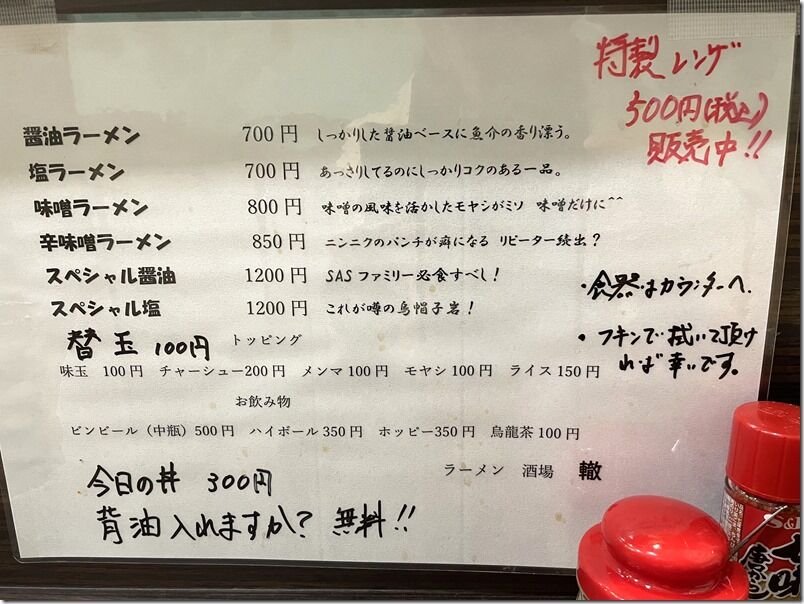 特製レンゲ
300円(税込)
販売中!!
醤油ラーメン 700円 しっかりした醤油ベースに魚介の香り漂う。
塩ラーメン 700円 あっさりしてるのにしっかりコクのある一品。
味噌ラーメン 800円 味噌の風味を活かしたモヤシがミソ 味噌だけに^^
辛味噌ラーメン 850円 ニンニクのパンチが癖になる リピーター続出?
スペシャル醤油 1200円 SASファミリー必食すべし!
スペシャル塩 1200円 これが噂の烏帽子岩!
・食器はカウンターへ.
・フキンで拭いて頂け
れば幸いです。
替玉 100円 トッピング
味玉 100円 チャーシュー200円 メンマ100円 モヤシ100円 ライス150円
お飲み物
ビンビール（中瓶）500円 ハイボール350円 ホッピー350円 烏龍茶100円
ラーメン 酒場 轍
今日の丼 300円
背油入れますか? 無料!!
S&B
七味
唐がらし